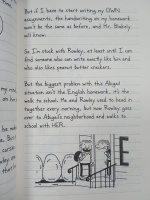 But if I have to start writing my OWN
assignments, the handwriting on my homework
won't be the same as before, and Mr. Blakely
will know.
So I'm stuck with Rowley, at least until I can
find someone who can write exactly like him and
who also likes peanut butter crackers.
But the biggest problem with the Abigail
situation isn't the English homework, it's the
walk to school. Me and Rowley used to head in
together every morning, but now Rowley goes
over to Abigail's neighborhood and walks to
school with HER.